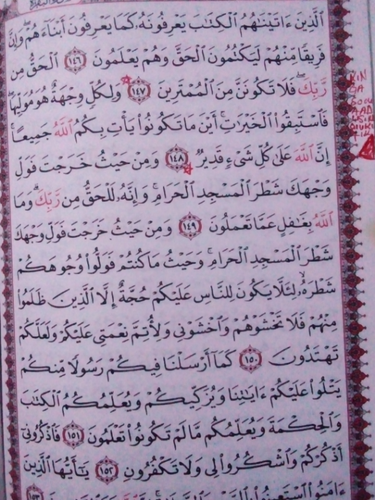 الَّذِينَ ءَاتَيْنَٰهُمُ الْكِتَٰبَ يَعْرِفُونَهُۥ كَمَا يَعْرِفُونَ أَبْنَآءَهُمْ ۖ وَإِنَّ
فَرِيقًا مِّنْهُمْ لَيَكْتُمُونَ الْحَقَّ وَهُمْ يَعْلَمُونَ ١٤٦ الْحَقُّ مِن
رَّبِّكَ ۖ فَلَا تَكُونَنَّ مِنَ الْمُمْتَرِينَ ١٤٧ وَلِكُلٍّ وِجْهَةٌ هُوَ مُوَلِّيهَا ۖ
فَاسْتَبِقُوا الْخَيْرَٰتِ ۚ أَيْنَ مَا تَكُونُوا يَأْتِ بِكُمُ اللَّهُ جَمِيعًا ۚ
إِنَّ اللَّهَ عَلَىٰ كُلِّ شَىْءٍ قَدِيرٌ ١٤٨ وَمِنْ حَيْثُ خَرَجْتَ فَوَلِّ
وَجْهَكَ شَطْرَ الْمَسْجِدِ الْحَرَامِ ۖ وَإِنَّهُۥ لَلْحَقُّ مِن رَّبِّكَ ۗ وَمَا
اللَّهُ بِغَٰفِلٍ عَمَّا تَعْمَلُونَ ١٤٩ وَمِنْ حَيْثُ خَرَجْتَ فَوَلِّ وَجْهَكَ
شَطْرَ الْمَسْجِدِ الْحَرَامِ ۚ وَحَيْثُ مَا كُنتُمْ فَوَلُّوا وُجُوهَكُمْ
شَطْرَهُۥ لِئَلَّا يَكُونَ لِلنَّاسِ عَلَيْكُمْ حُجَّةٌ إِلَّا الَّذِينَ ظَلَمُوا
مِنْهُمْ فَلَا تَخْشَوْهُمْ وَاخْشَوْنِى وَلِأُتِمَّ نِعْمَتِى عَلَيْكُمْ وَلَعَلَّكُمْ
تَهْتَدُونَ ١٥٠ كَمَآ أَرْسَلْنَا فِيكُمْ رَسُولًا مِّنكُمْ
يَتْلُوا عَلَيْكُمْ ءَايَٰتِنَا وَيُزَكِّيكُمْ وَيُعَلِّمُكُمُ الْكِتَٰبَ
وَالْحِكْمَةَ وَيُعَلِّمُكُم مَّا لَمْ تَكُونُوا تَعْلَمُونَ ١٥١ فَاذْكُرُونِىٓ
أَذْكُرْكُمْ وَاشْكُرُوا لِى وَلَا تَكْفُرُونِ ١٥٢ يَٰٓأَيُّهَا الَّذِينَ